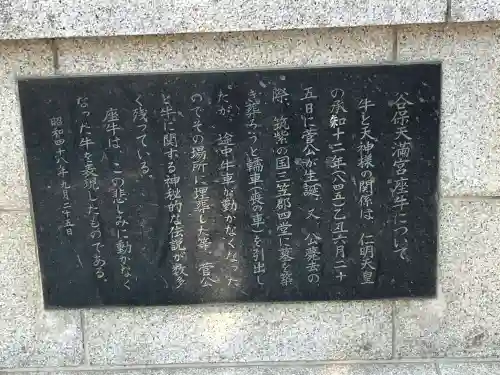 谷保天満宮座牛について
牛と天神様の関係は 仁明天皇
の承和十二年(八四五)乙丑六月二十
五日に菅公が生誕、又 公薨去の
際、筑紫の国三笠郡四堂に墓を築
き葬みつと轜車(喪の車)を引出し
たが 途中牛車が動かなくなった
のでその場所に埋葬した等 菅公
と牛に関する神秘的な伝説が数多
く残っている。
座牛は、この悲しみに動かなく
なった牛を表現したものである。
昭和四十八年九月二十五日